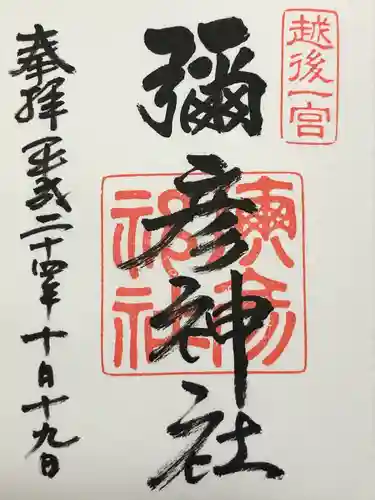 越後一宮
彌彦神社
奉拝 平成二十四年十月十九日
彌彦神社